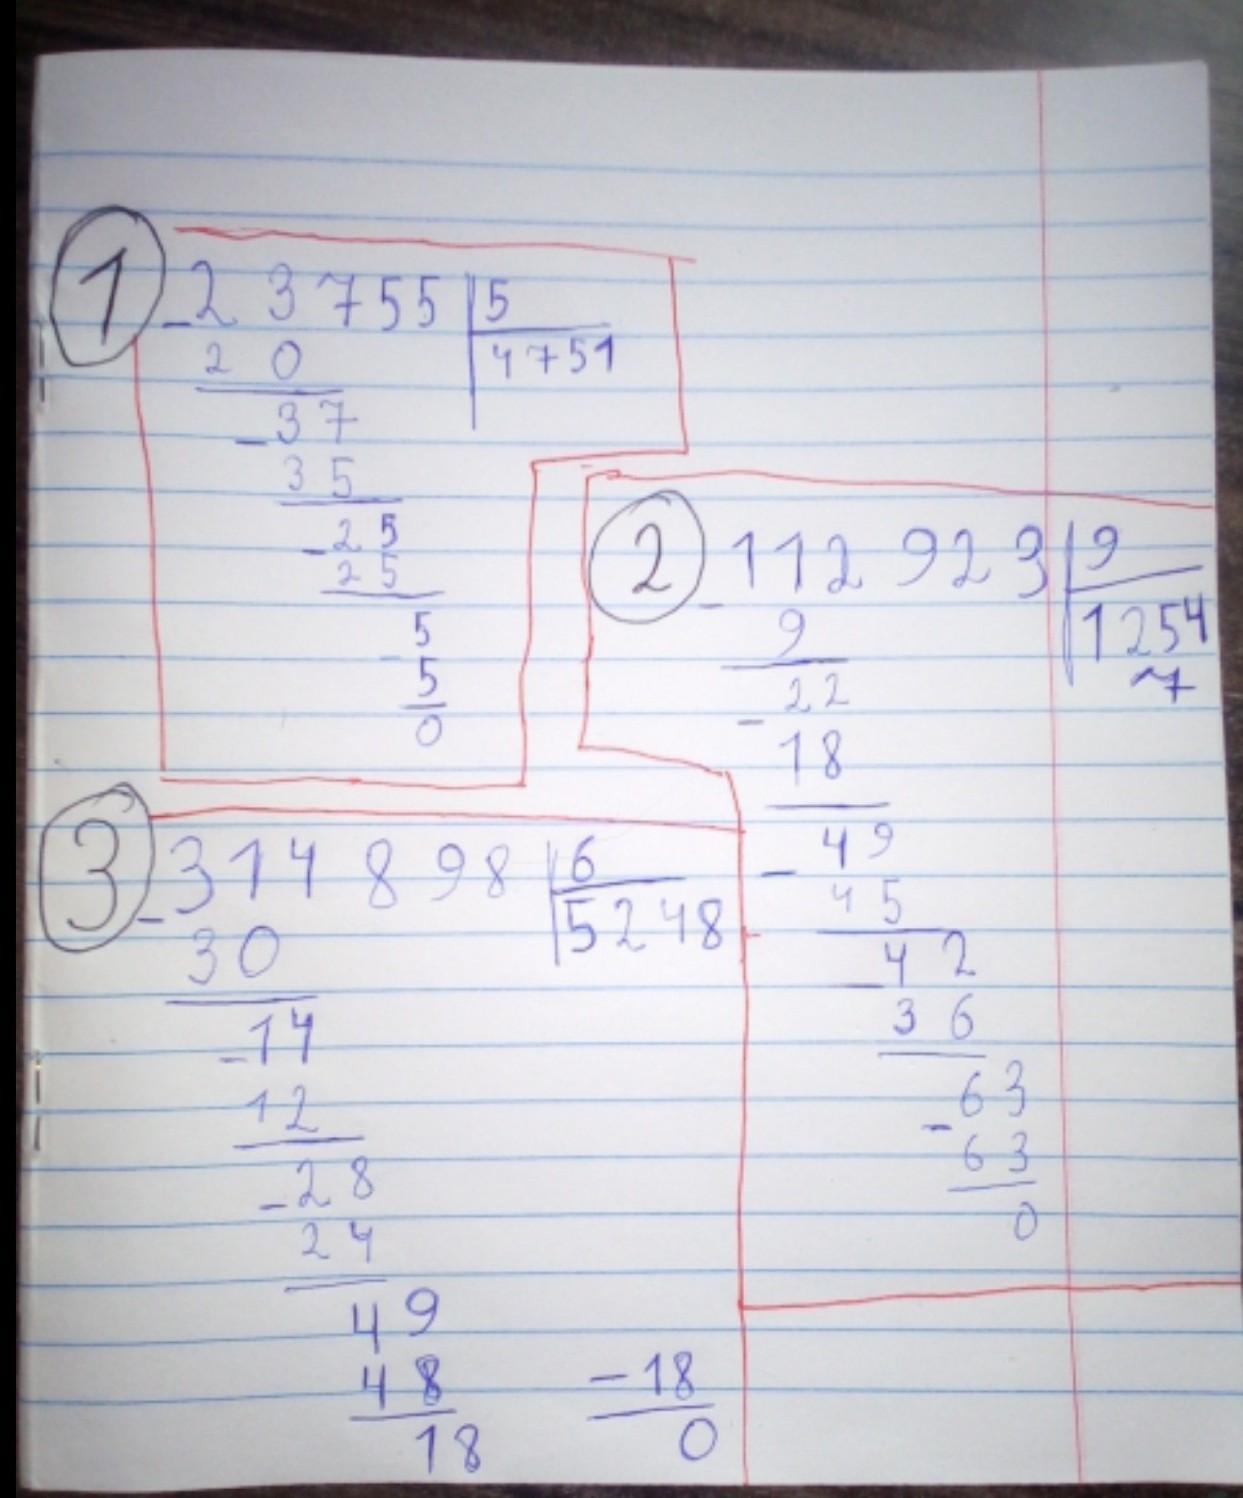 1
- 23755 | 5
20 4751
- 37
35
- 25
25
- 5
5
0
2
- 112 923 | 9
9 1254
22 7
- 18
49
- 45
42
- 36
63
- 63
0
3
- 314 898 | 6
30 5248
- 14
12
- 28
24
49
48
18
- 18
0